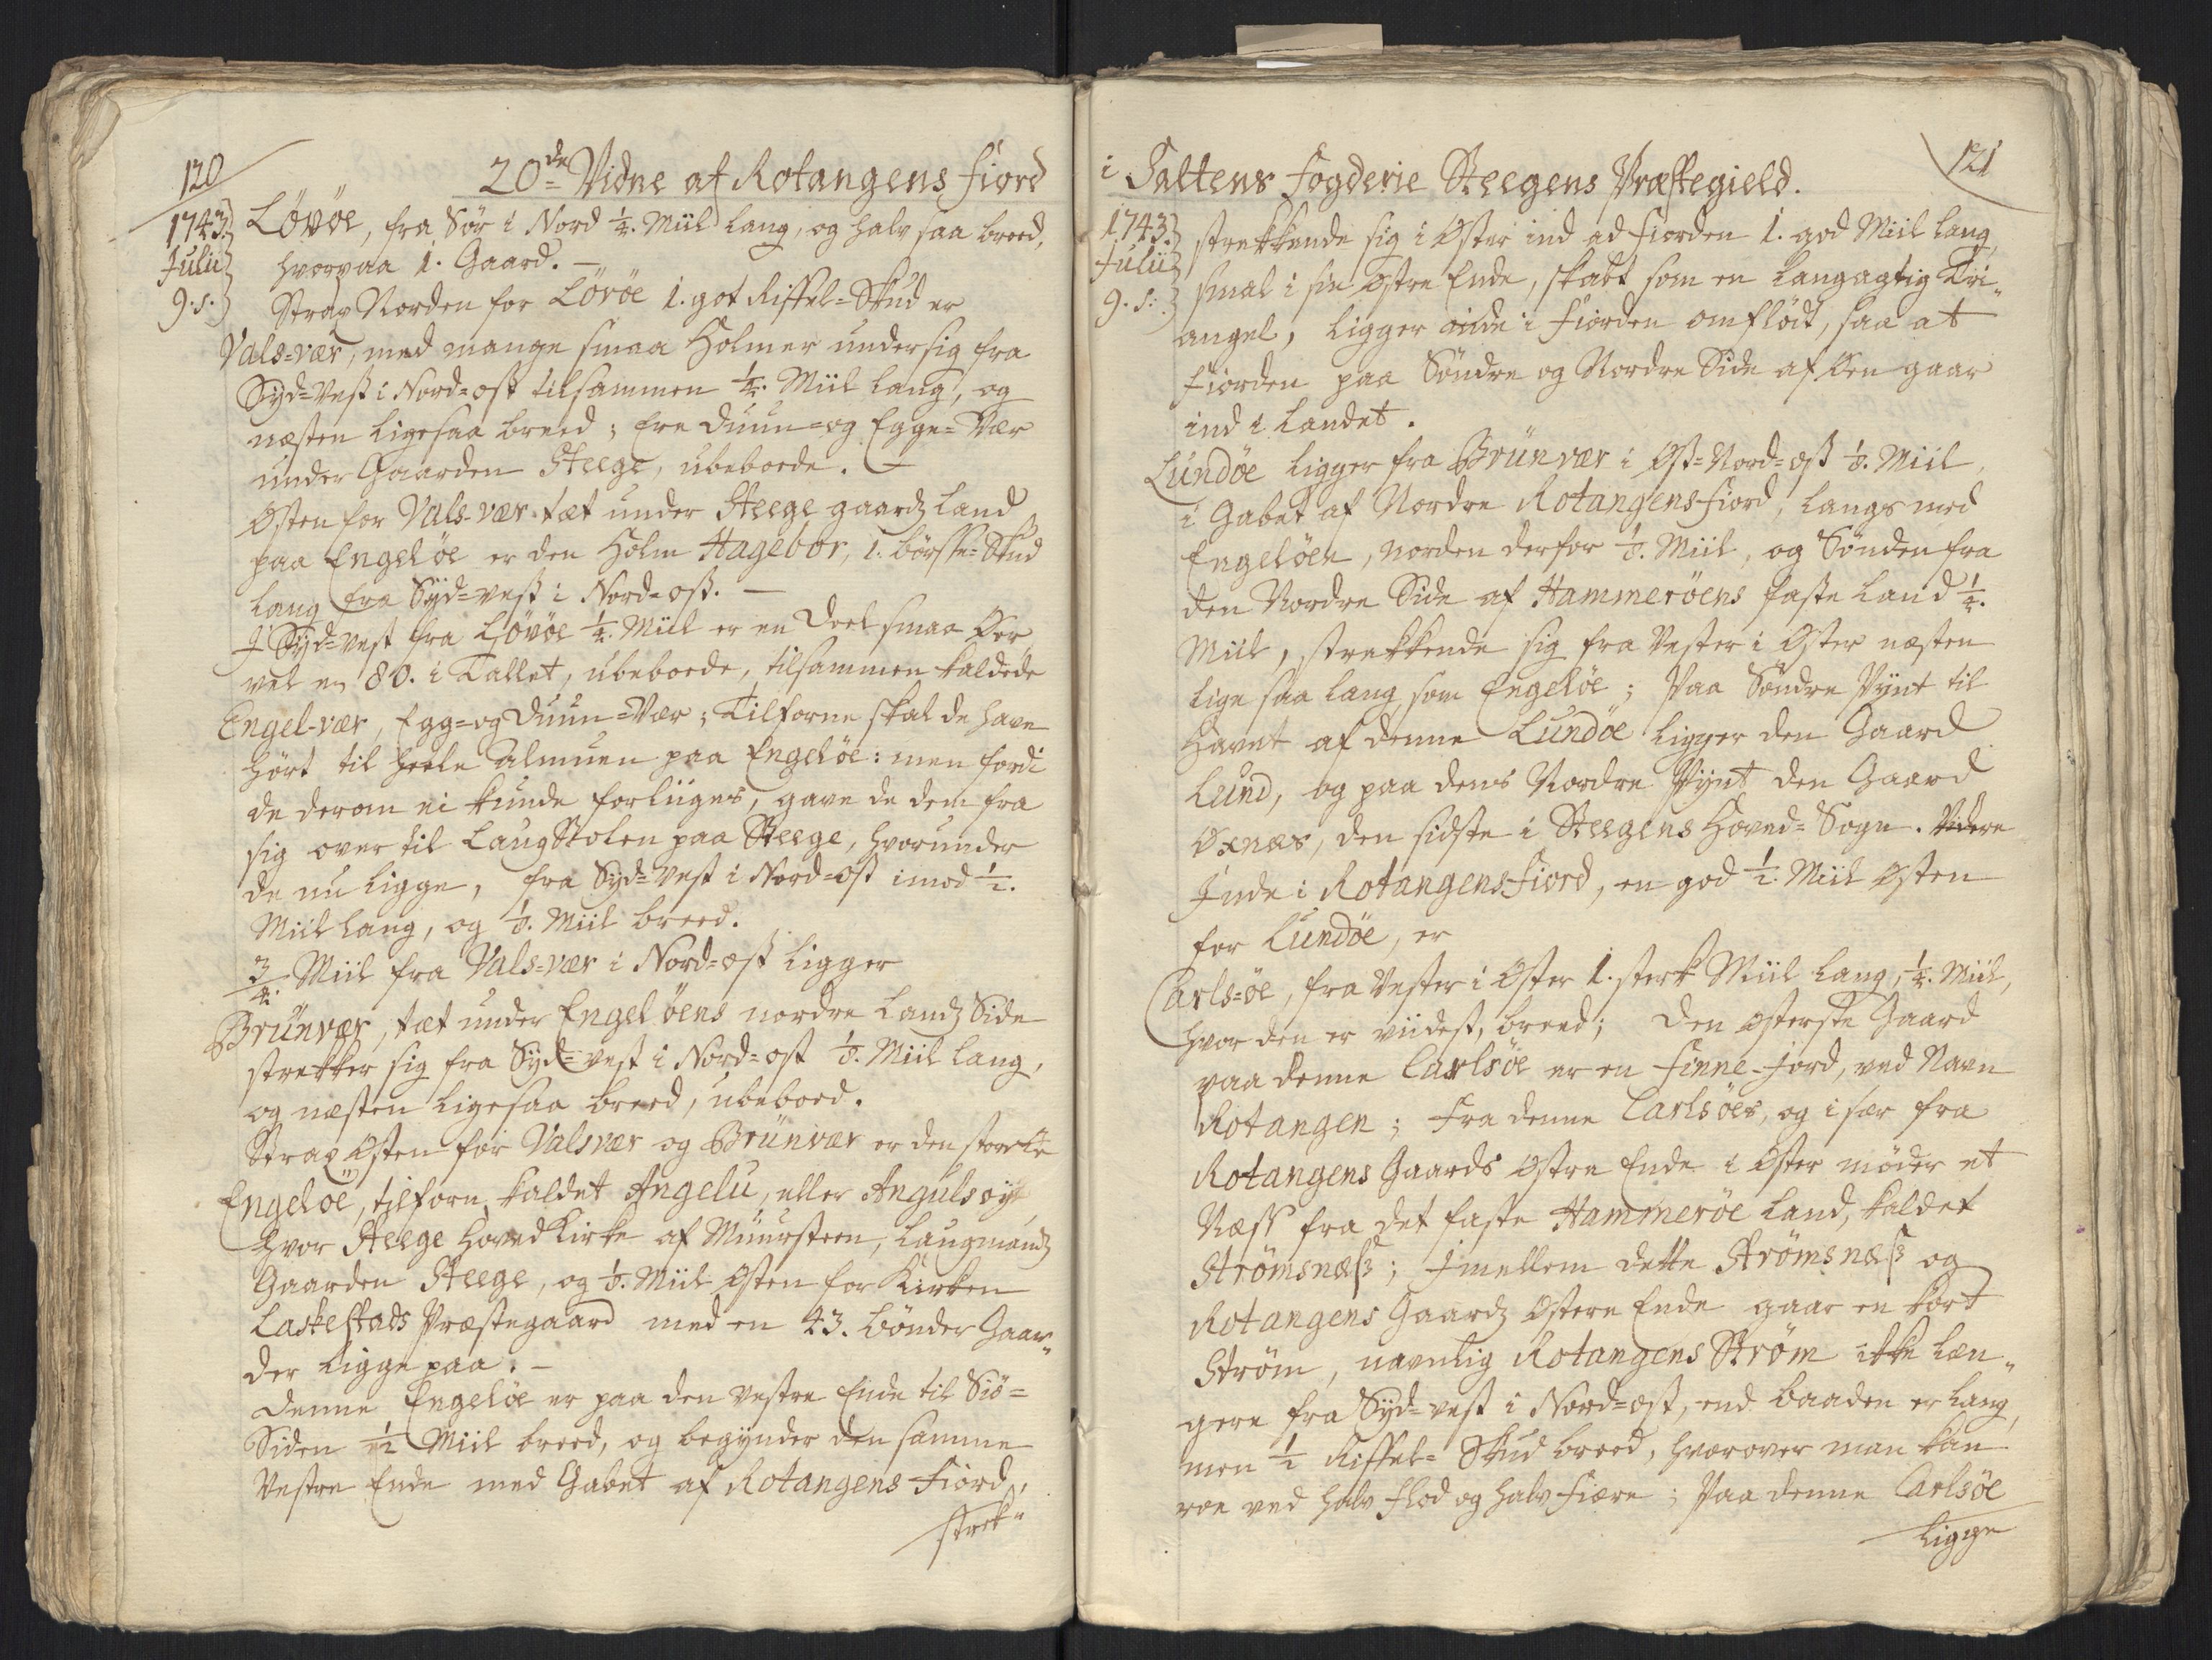 120
20de Vidne af Rotangens Fiord
1743.
Julii
9. s.
Løvöe, fra Sör i Nord 1/4. Miil lang, og halv saa breed,
hvorpaa 1. Gaard. –
Strax Norden for Lövöe 1. got Riffel=Skud er
Vals=vær, med mange smaa Holmer under sig fra
Syd=Vest i Nord=ost tilsammen 1/4. Miil lang, og
næsten ligesaa breed; Ere Duun= og Egge=Vær
under Gaarden Steege, ubeboede. –
Østen for Vals-vær tæt under Steege gaards Land
paa Engelöe er den Holm Hagebor, 1. börsse=Skud
lang fra Syd=vest i Nord=ost. –
I Syd=vest fra Lövöe 1/4. Miil er en Deel smaa Øer
vel en 80. i Tallet, ubeboede, tilsammen kaldede
Engel-vær, Egg= og Duun=Vær; Tilforne skal de have
hört til heele Almuen paa Engelöe: men fordi
de derom ei kunde forliiges, gave de dem fra
sig over til LaugStolen paa Steege, hvorunder
de nu ligge, fra Syd=Vest i Nord=ost imod 1/2.
Miil lang, og 1/8. Miil breed.
3/4. Miil fra Vals=vær i Nord=ost ligger
Brünvær, tæt under Engelöens nordre Lands Side
strekker sig fra Syd=vest i Nord=ost 1/8. Miil lang,
og næsten ligesaa breed, ubeboed.
Strax Østen for Valsvær og Brünvær er den store
Engelöe, tilforn kaldet Angelu, eller Angulsøy,
hvor Steege Hoved Kirke af Muursteen, Laugmands
Gaarden Steege, og 1/8. Miil Østen for Kirken
Laskestads Præstegaard med en 43. bönder Gaar„
der ligge paa. –
Denne Engelöe er paa den Vestre Ende til Siö=
Siden 1/2 Miil breed, og begynder den samme
Vestre Ende med Gabet af Rotangens Fiord,
strek„
121
i Saltens Fogderie Steegens Præstegield.
1743.
Julii
9. s.
strekkende sig i Øster ind ad Fiorden 1. god Miil lang,
smal i sin østre Ende, skabt som en langagtig Tri„
angel, ligger inde i Fiorden omflödt, saa at
Fiorden paa Söndre og Nordre Side af Øen gaar
ind i Landet.
Lundöe ligger fra Brünvær i Øst=Nord=ost 1/8. Miil,
i Gabet af Nordre Rotangens Fiord, langs med
Engelöen, norden derfor 1/8. Miil, og Sönden fra
den Nordre Side af Hammeröens faste Land 1/4.
Miil, strekkende sig fra Vester i Øster næsten
lige saa lang som Engelöe; Paa Söndre Pynt til
Havet af denne Lundöe ligger den Gaard
Lund, og paa dens Nordre Pynt den Gaard
Oxnæs, den sidste i Steegens Hoved=Sogn. Videre
Inde i Rotangens Fiord, en god 1/2. Miil Østen
for Lundöe, er
Carls=öe, fra Vester i Øster 1. sterk Miil lang, 1/4. Miil,
hvor den er viidest, breed; Den Østerste Gaard
paa denne Carlsöe er en Finne-Jord, ved Navn
Rotangen; Fra denne Carlsöes, og i sær fra
Rotangens Gaards Østre Ende i Øster möder et
Næss fra det faste Hammeröe Land, kaldet
Strömsnæss; Imellem dette Strömsnæss og
Rotangens Gaards Østere Ende gaar en kort
Ström, navnlig Rotangens Ström ikke læn„
gere fra Syd=vest i Nord=ost, end baaden er lang,
men 1/2 Riffel=Skud breed, hvorover man kan
roe ved halv Flod og halv Fiære; Paa denne Carlsöe
ligge